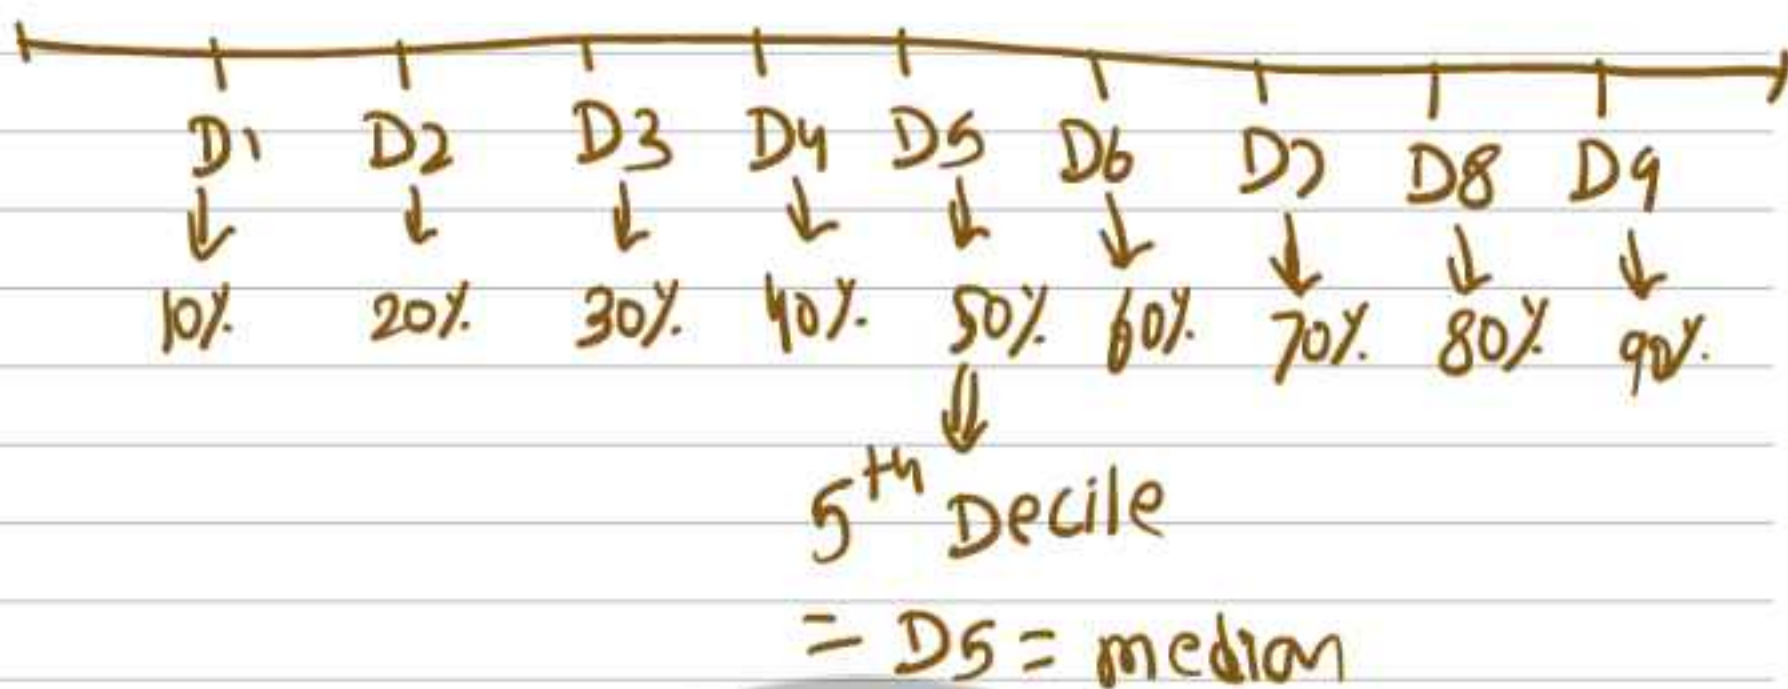 D1 D2 D3 D4 D5 D6 D7 D8 D9
10% 20% 30% 40% 50% 60% 70% 80% 90%
5th Decile
= D5 = median